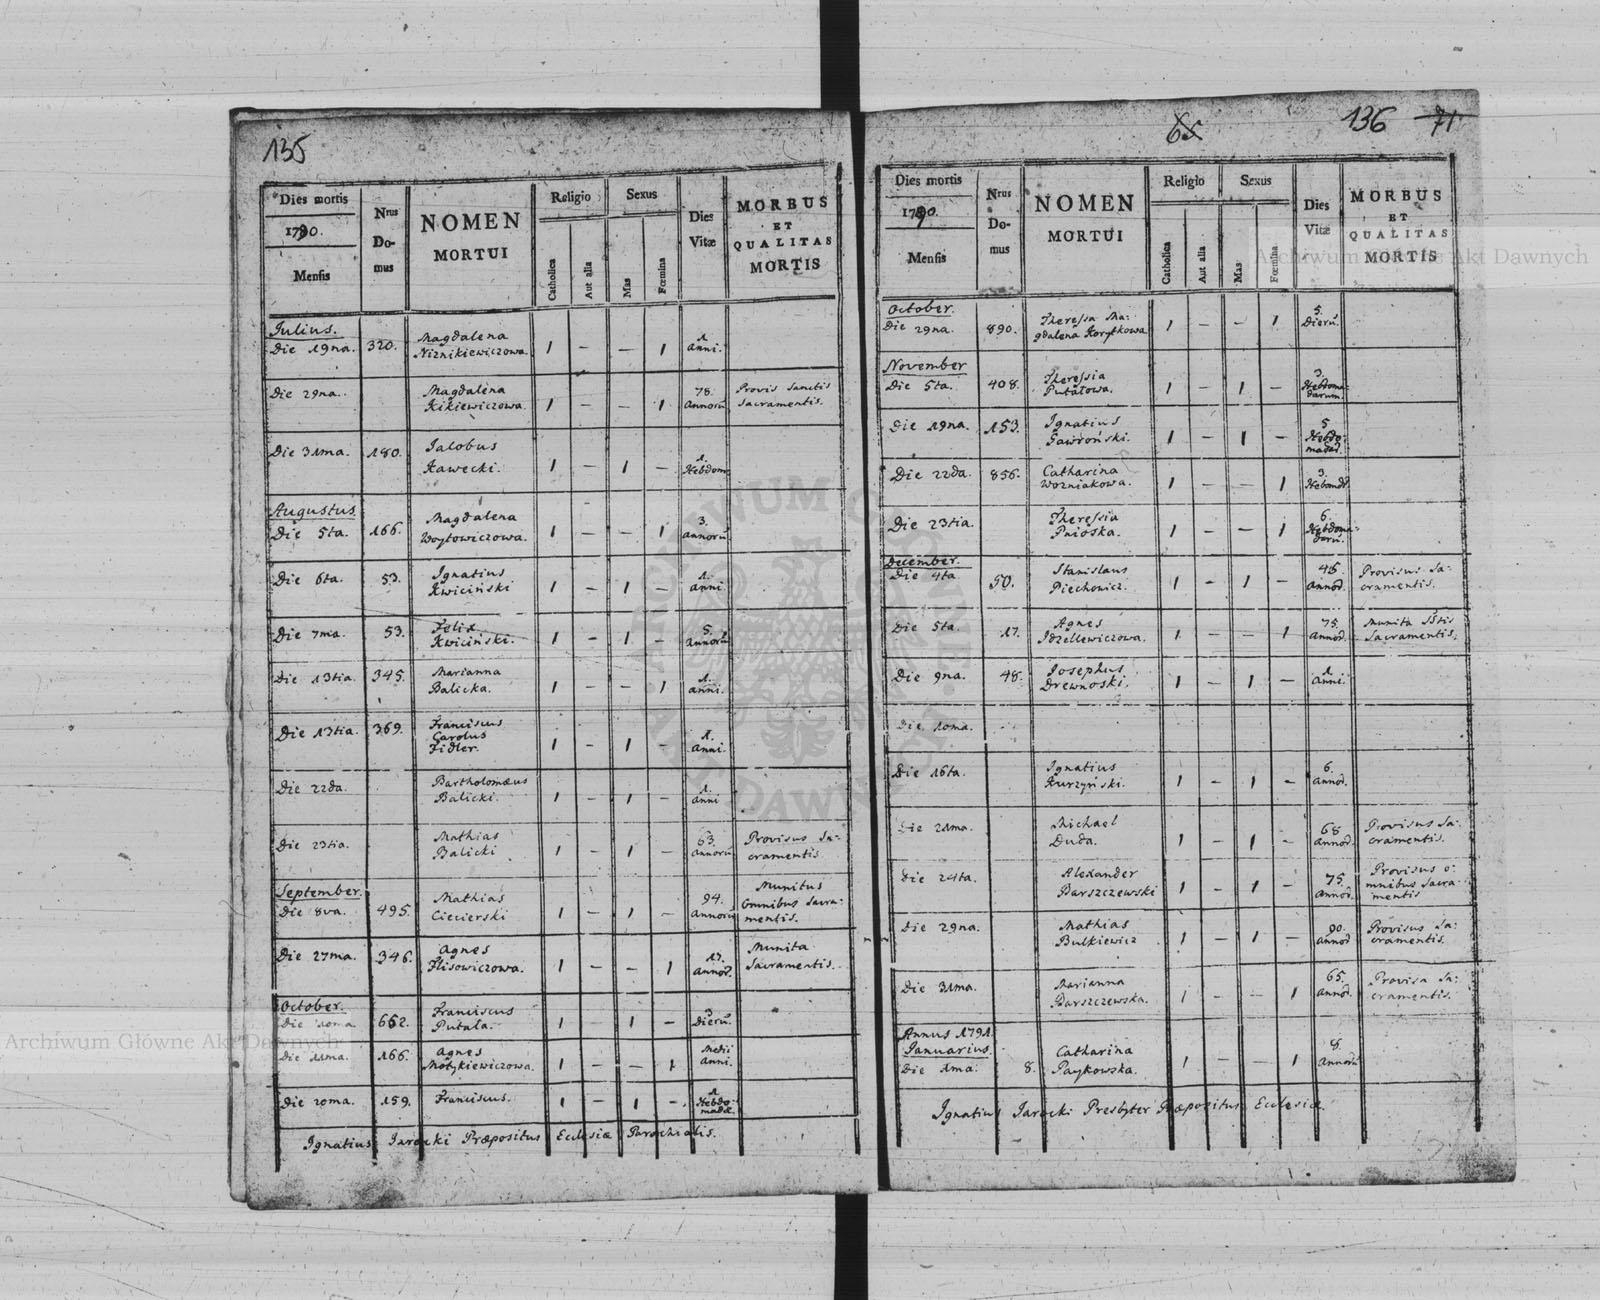 135
Dies mortis
1790.
Mensis
Nrus
Do-
mus
NOMEN
MORTUI
Religio
Catholica
Aut alia
Sexus
Mas
Fœmina
Dies
Vitæ
MORBUS
ET
QUALITAS
MORTIS
Julius.
Die 19na. 320. Magdalena
Niznikiewiczowa. 1 – – 1 1 anni.
Die 29na. Magdalena
Kikiewiczowa. 1 – – 1 78. Annorū Provis Sanctis
Sacramentis.
Die 31ma. 180. Jacobus
Kawecki. 1 – 1 – 1. Hebdom:
Augustus
Die 5ta. 166. Magdalena
Woytowiczowa. 1 – – 1 3. annorū
Die 6ta. 53. Ignatius
Kwiciński 1 – 1 – 1. anni.
Die 7ma. 53. Felix
Kwiciński. 1 – 1 – 5. annorū
Die 13tia. 345. Marianna
Balicka. 1 – – 1 1. anni.
Die 13tia. 369. Franciscus
Carolus
Fidler. 1 – 1 – 1. Anni.
Die 22da. Bartholomæus
Balicki. 1 – 1 – 1. anni
Die 23tia. Mathias
Balicki 1 – 1 – 63. annorū Provisus Sa-
cramentis.
September.
Die 8va. 495. Mathias
Ciecierski 1 – 1 – 94. Annorū Munitus
omnibus Sacra-
mentis.
Die 27ma. 346. Agnes
Flisowiczowa. 1 – – 1 17. Annoȓ. Munita
Sacramentis.
October.
Die 10ma 662. Franciscus
Putała. 1 – 1 – 3 Dierū.
Die 11ma. 166. Agnes
Motykiewiczowa. 1 – – 1 Medii
Anni.
Die 20ma. 159. Franciscus. 1 – 1 – 1 Hebdo-
madæ
Ignatius Jarocki Præpositus Ecclesiæ Parochialis.
65 136 71
Dies mortis
1790.
Mensis
Nrus
Do-
mus
NOMEN
MORTUI
Religio
Catholica
Aut alia
Sexus
Mas
Fœmina
Dies
Vitæ
MORBUS
ET
QUALITAS
MORTIS
October.
Die 29na. 890. Theressa Ma-
gdalena Korytkowa 1 – – 1 5. Dierū.
November
Die 5ta. 408. Theressia
Putałowa. 1 – 1 – 3. Hebdoma-
darum.
Die 19na. 153. Ignatius
Gawroński. 1 – 1 – 5 Hebdo-
madaȓ.
Die 22da. 856. Catharina
Wozniakowa. 1 – – 1 3.
Die 23tia. Theressia
Pnioska. 1 – – 1 6. Hebdoma-
darū.
December.
Die 4ta 50. Stanislaus
Piechowicz. 1 – 1 – 46 Annoȓ. Provisus Sa-
cramentis.
Die 5ta. 17. Agnes
Idzellewiczowa. 1 – – 1 75. Annoȓ. Munita SStis
Sacramentis.
Die 9na. 48. Josephus
Drewnoski. 1 – 1 – 1 anni.
Die 10ma.
Die 16ta. Ignatius
Kurzyński. 1 – 1 – 6. Annoȓ.
Die 21ma. Michael
Duda. 1 – 1 – 68 Annoȓ. Provisus Sa-
cramentis.
Die 24ta. Alexander
Barszczewski 1 – 1 – 75. Annoȓ. Provisus o-
mnibus Sacra-
mentis
Die 29na. Mathias
Bulkiewicz 1 – 1 – 90. Annoȓ Provisus Sa-
cramentis.
Die 31ma. Marianna
Barszczewska. 1 – – 1 65. Annoȓ. Provisa Sa-
cramentis.
Annus 1791.
Januarius.
Die 1ma. 8. Catharina
Paykowska. 1 – – 1 8. Annorū
Ignatius Jarocki Presbyter Præpositus Ecclesiæ.
Archiwum Główne Akt Dawnych
Archiwum Główne Akt Dawnych
ARCHIWUM GŁÓWNE
AKT DAWNYCH